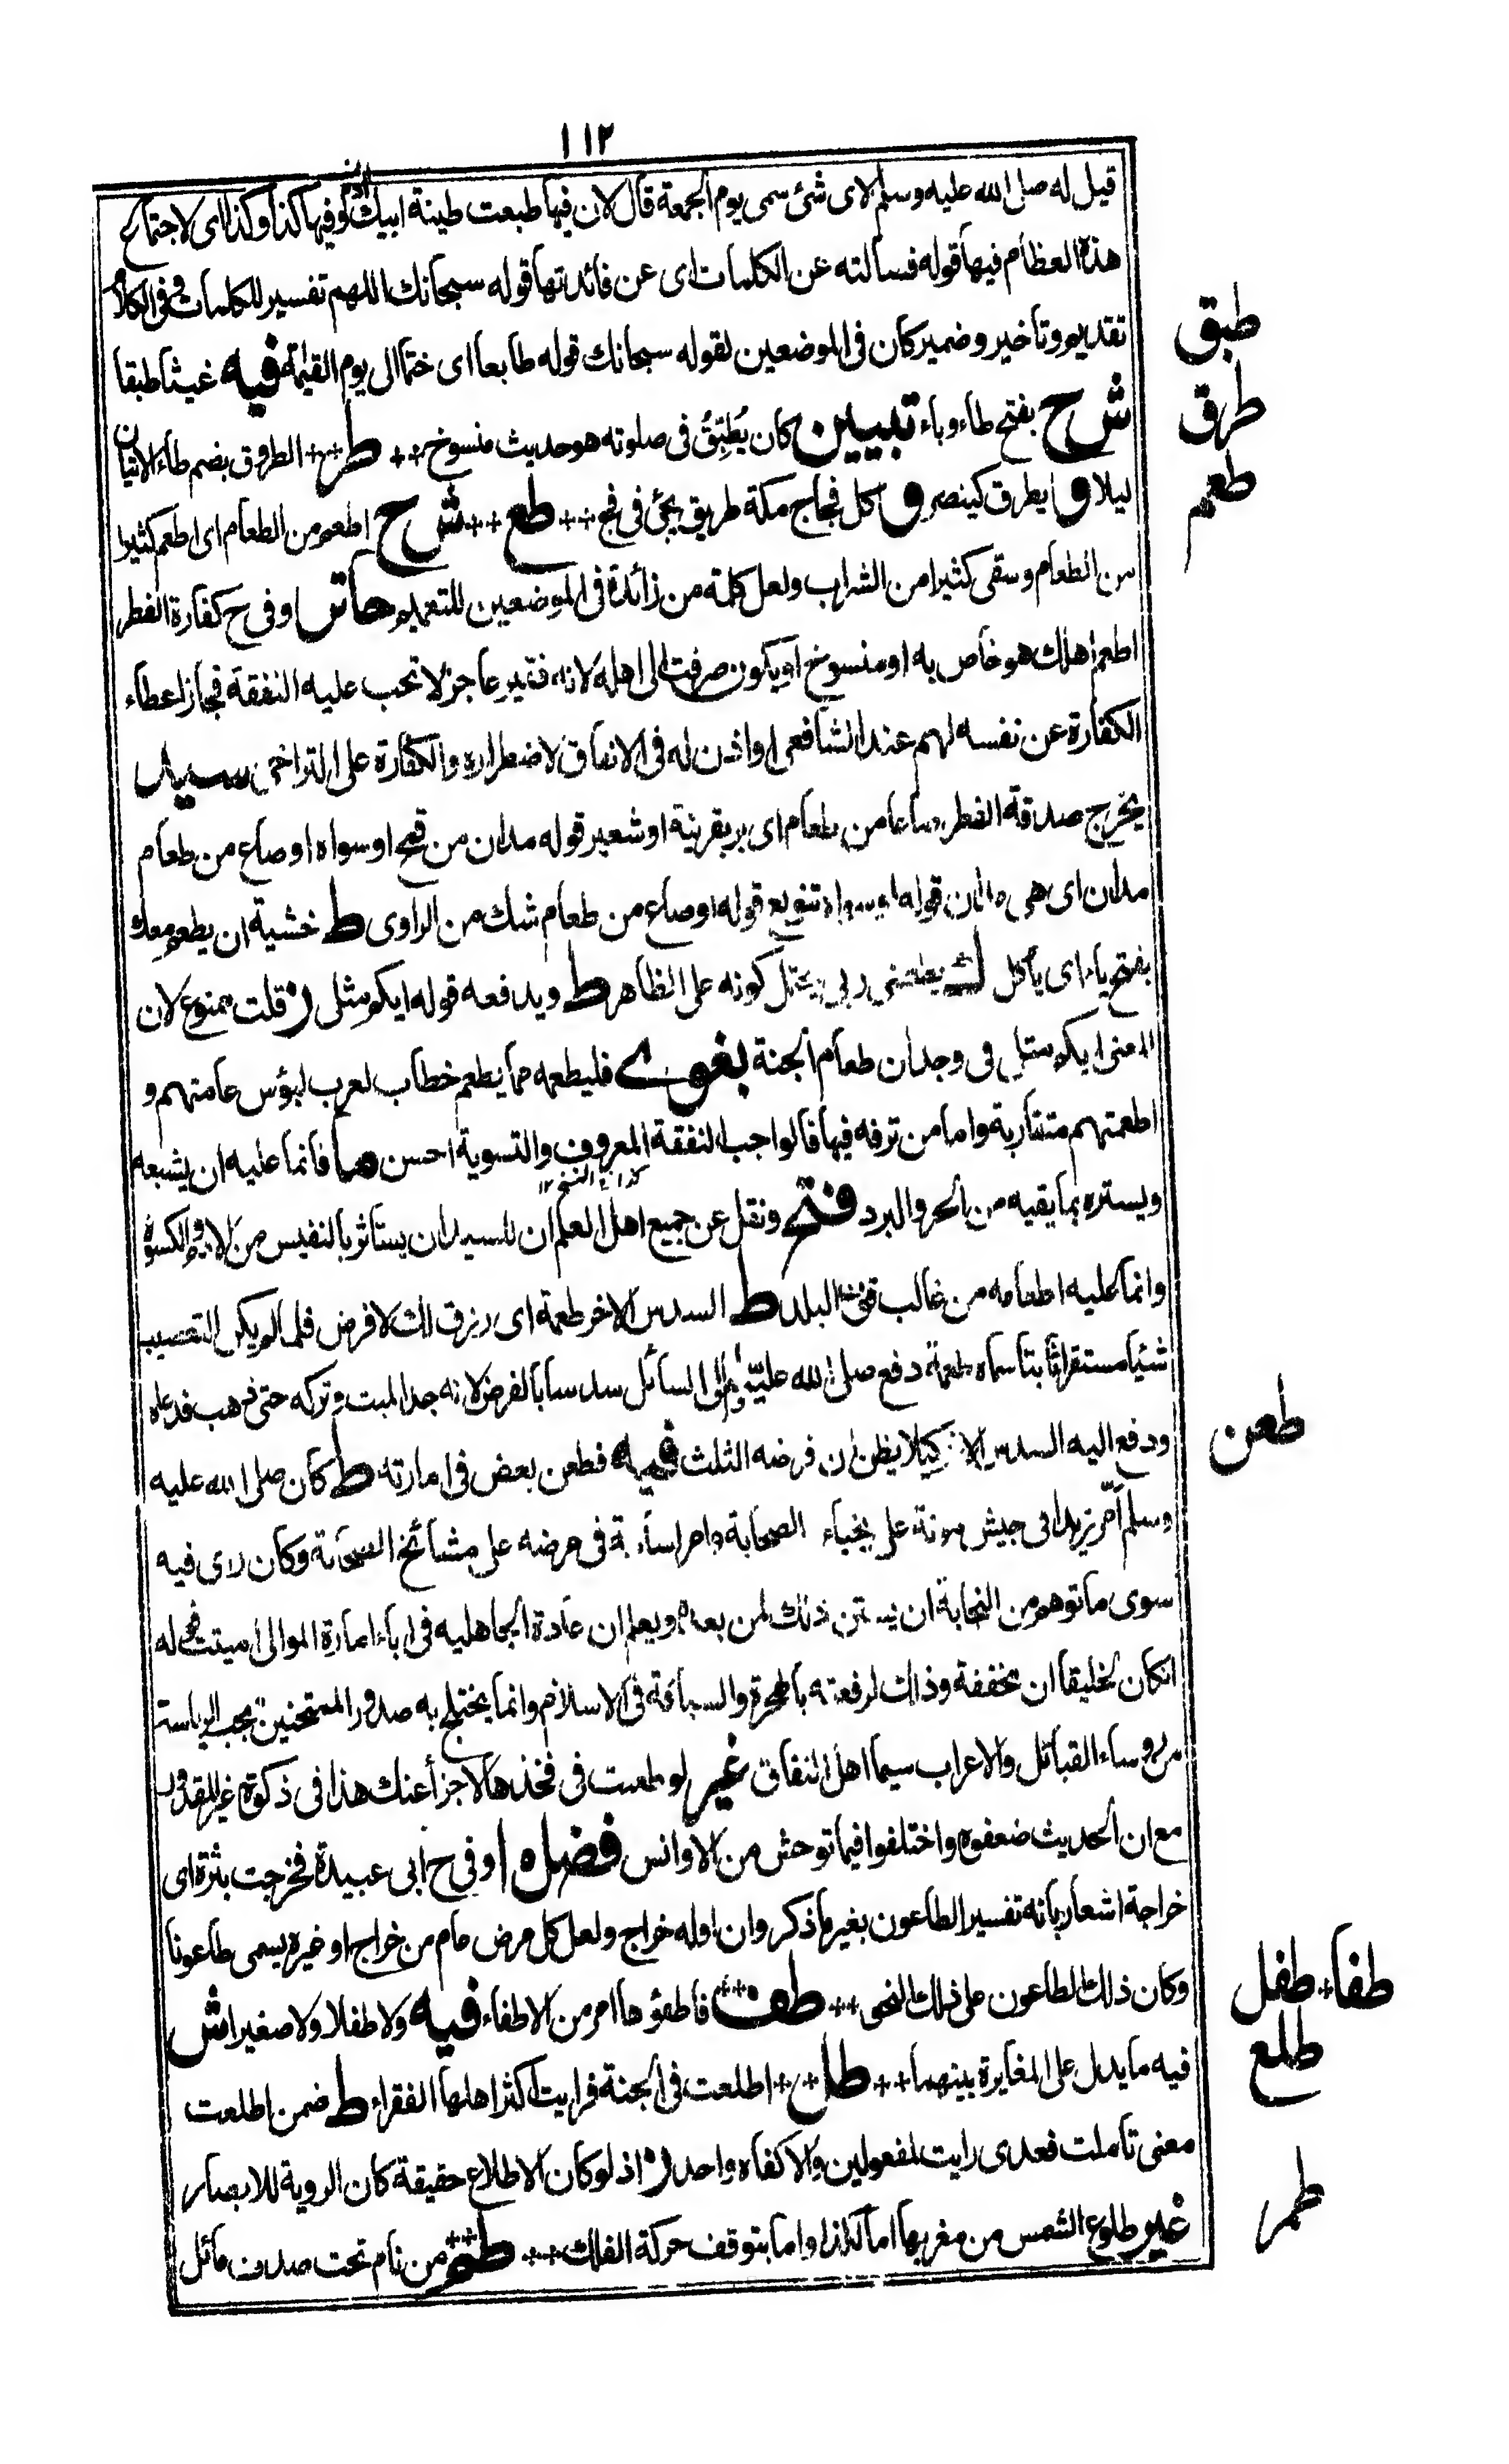 ١١٢
قيل له صلى الله عليه وسلم لاى شئ سمى يوم الجمعة قال لان فيها طبعت طينة ابيك ادم وفيها كذا وكذا اى لاجتماع
هذه العظام فيها قوله فسالته عن الكلمات اى عن فائدتها قوله سبحانك اللهم تفسير للكلمات وفى الكلام
تقديم وتاخير وضمير كان فى الموضعين لقوله سبحانك قوله طابعا اى ختما الى يوم القيمة فيه غيثا طبقا
طبق
ش ح بفتح طاء وباء تبيين كان يُطَبِّقُ فى صلوته هو حديث منسوخ ++ طر ++ الطروق بضم طاء الاتيان
طرق
ليلا و يطرق كينصر و كل فجاج مكة طريق يجئ فى فج ++ طع ++ ش ح اطعم من الطعام اى اطعم كثيرا
طعم
من الطعام وسقى كثيرا من الشراب ولعل كلمة من زائدة فى الموضعين للتعميم هاتن وفى ح كفارة الفطر
اطعم اهلك هو خاص به او منسوخ او يكون صرفت الى اهله لانه فقير عاجز لا تجب عليه النفقة فجاز اعطاء
الكفارة عن نفسه لهم عند الشافعى او اذن له فى الانفاق لاضطراره والكفارة على التراخى سيد
يخرج صدقة الفطر صاعا من طعام اى بر بقرينة او شعير قوله مدان من قمح او سواه او صاع من طعام
مدان اى هى مدان قوله او سواه تنويع قوله او صاع من طعام شك من الراوى ط خشية ان يطعم معك
بفتح ياء اى ياكل ك يطعمنى ربى يحتمل كونه على الظاهر ط ويدفعه قوله ايكم مثلى ن قلت ممنوع لان
المعنى ايكم مثلى فى وجدان طعام الجنة بغوى فليطعمه مما يطعم خطاب لعرب لبؤس عامتهم و
اطعمتهم متقاربة واما من ترفه فيها فالواجب النفقة المعروف والتسوية احسن ما فانما عليه ان يشبعه
كذا فى النسخ ١٢
ويستره بما يقيه من الحر والبرد فتح ونقل عن جميع اهل العلم ان للسيد ان يستاثر بالنفيس من الادم والكسوة
وانما عليه اطعامه من غالب قوت البلد ط السدس الاخر طعمة اى رزق لك لا فرض فلما لم يكن التعصيب
شيئا مستقرا ثابتا سماه طعمة دفع صلى الله عليه وسلم الى السائل سدسا بالفرض لانه جد الميت وتركه حتى ذهب فدعاه
ودفع اليه السدس الاخر كيلا يظن ان فرضه الثلث فيه فطعن بعض فى امارته ط كان صلى الله عليه
طعن
وسلم امّر زيدا فى جيش موتة على نجباء الصحابة وامر اسامة فى مرضه على مشائخ الصحابة وكان راى فيه
سوى ما توهم من النجابة ان يستن ذلك لمن بعده ويعلم ان عادة الجاهلية فى اباء امارة الموالى اميتت قوله
انكان لخليقا ان مخففة وذلك لرفعته بالهجرة والسباقة فى الاسلام وانما يختلج به صدور الممتحنين بحب الرياسة
من روساء القبائل والاعراب سيما اهل النفاق غير لو طعنت فى فخذها لاجزأ عنك هذا فى ذكوة غير المقدور
مع ان الحديث ضعفوه واختلفوا فيما توحش من الاوانس فضل ه ا وفى ح ابى عبيدة فخرجت بثرة اى
خراجة اشعار بانه تفسير الطاعون بغير ما ذكر وان اوله خراج ولعل كل مرض عام من خراج او غيره يسمى طاعونا
وكان ذلك الطاعون على ذلك النحى ++ طف ++ فاطفؤها امر من الاطفاء فيه ولا طفلا ولا صغيرا ش
طفاء طفل
فيه ما يدل على المغايرة بينهما ++ طل ++ اطلعت فى الجنة فرايت اكثر اهلها الفقراء ط ضمن اطلعت
طلع
معنى تاملت فعدى رايت لمفعولين والا كفاه واحد ن اذ لو كان الاطلاع حقيقة كان الروية للابصار
غير طلوع الشمس من مغربها اما لكذا واما بتوقف حركة الفلك ++ طم ++ من نام تحت صدف مائل
طمر